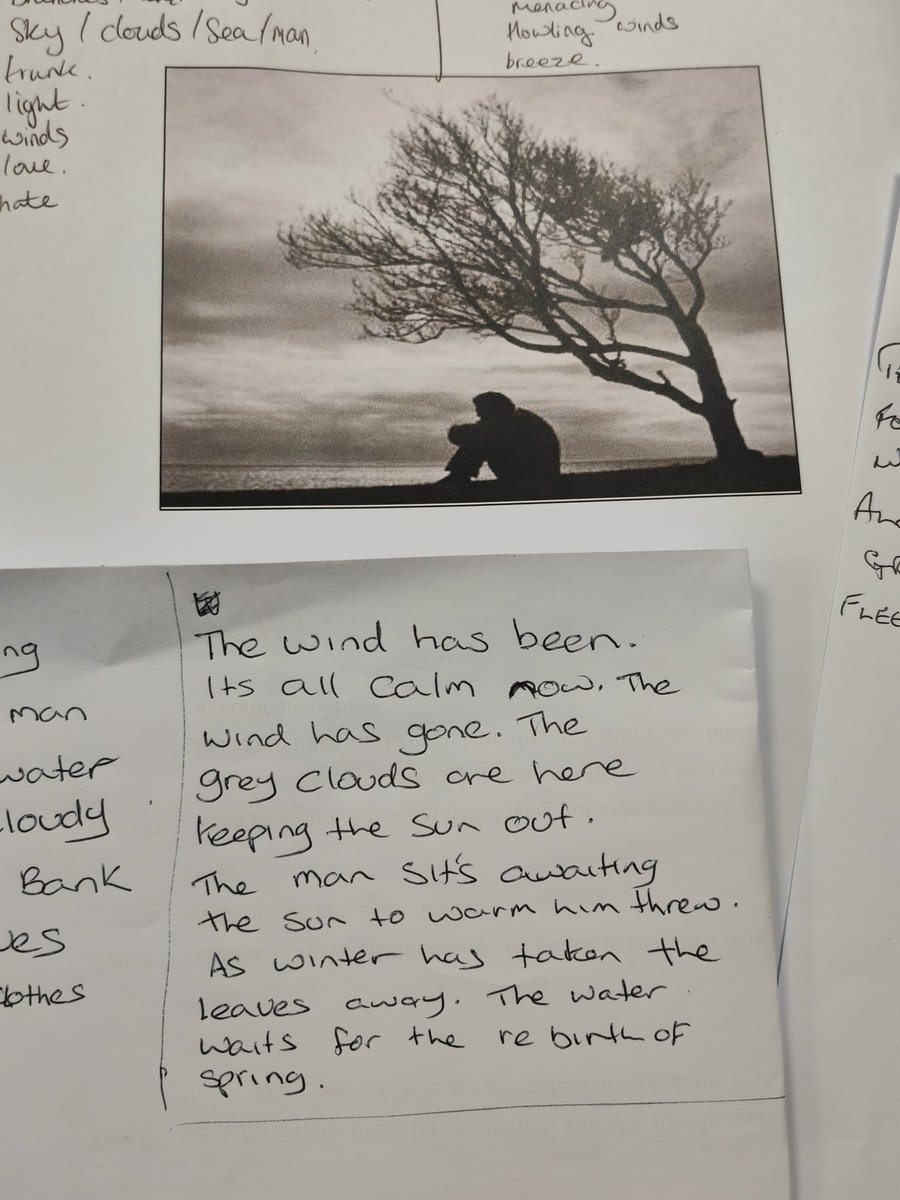 Sky / clouds / Sea / man,
trunk.
light.
winds
love.
hate
menacing
Howling winds
breeze.
man
water
Bank
The wind has been.
Its all calm now. The
wind has gone. The
grey clouds are here
keeping the sun out.
The man sits awaiting
the sun to warm him threw.
As winter has taken the
leaves away. The water
waits for the re birth of
spring.